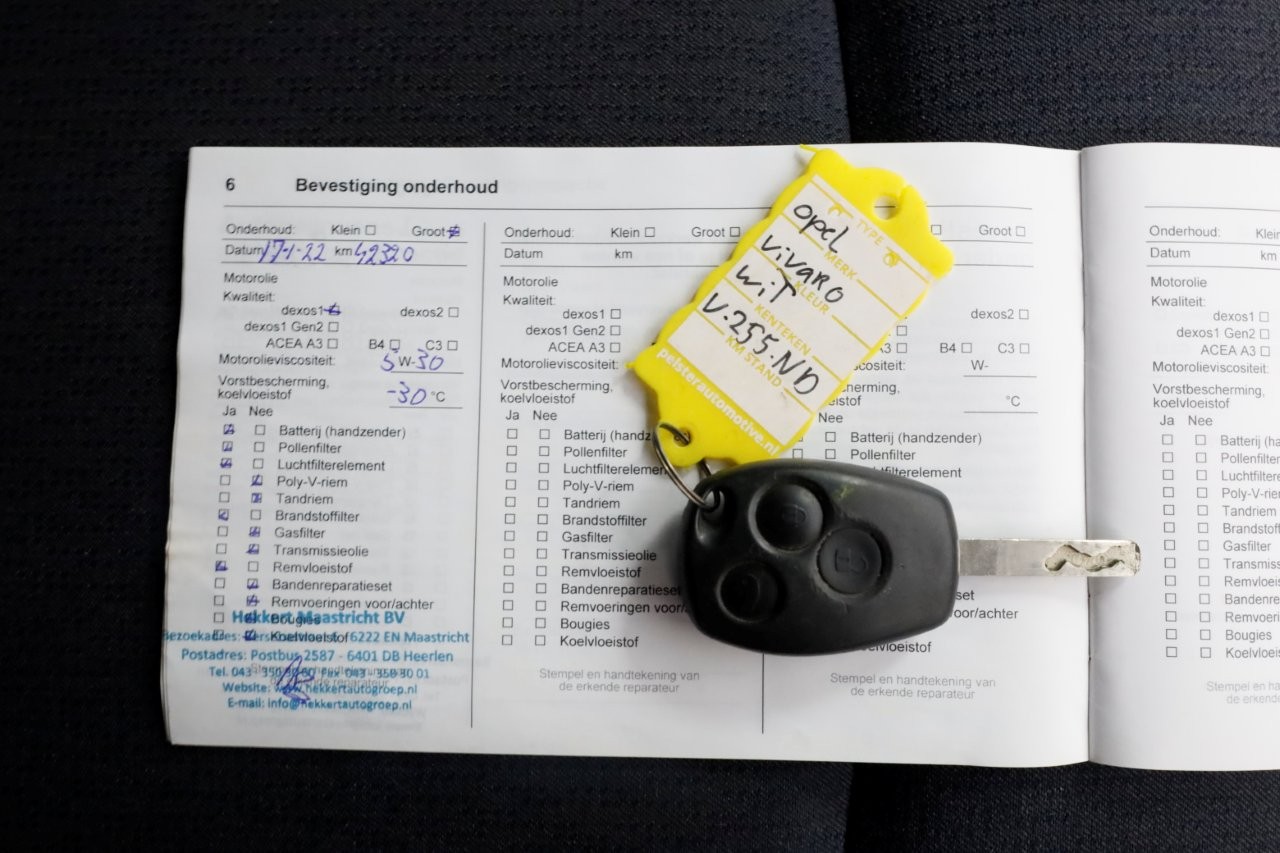 6 Bevestiging onderhoud
Onderhoud: Klein Groot
Datum 17-1-22 km 42320
Motorolie
Kwaliteit:
dexos1 dexos2
dexos1 Gen2
ACEA A3 B4 C3
Motorolieviscositeit: 5 W-30
Vorstbescherming,
koelvloeistof -30 °C
Ja Nee
Batterij (handzender)
Pollenfilter
Luchtfilterelement
Poly-V-riem
Tandriem
Brandstoffilter
Gasfilter
Transmissieolie
Remvloeistof
Bandenreparatieset
Remvoeringen voor/achter
Bougies
Koelvloeistof
Hekkert Maastricht BV
6222 EN Maastricht
Postadres: Postbus 2587 - 6401 DB Heerlen
Tel. 043 - Fax 043 - 358 30 01
Website: www.hekkertautogroep.nl
E-mail: info@hekkertautogroep.nl
Onderhoud: Klein Groot
Datum km
Motorolie
Kwaliteit:
dexos1
dexos1 Gen2
ACEA A3
Motorolieviscositeit:
Vorstbescherming,
koelvloeistof
Ja Nee
Batterij (handz
Pollenfilter
Luchtfilterelemen
Poly-V-riem
Tandriem
Brandstoffilter
Gasfilter
Transmissieolie
Remvloeistof
Bandenreparaties
Remvoeringen voor/
Bougies
Koelvloeistof
Stempel en handtekening van
de erkende reparateur
TYPE
opel
MERK
Vivaro
KLEUR
wit
KENTEKEN
V.255.ND
KM STAND
pelsterautomotive.nl
Groot
dexos2
A3 B4 C3
scositeit: W-
cherming,
istof °C
Nee
Batterij (handzender)
Pollenfilter
Luchtfilterelement
set
voor/achter
Stempel en handtekening van
de erkende reparateur
Onderhoud: Klei
Datum km
Motorolie
Kwaliteit:
dexos1
dexos1 Gen2
ACEA A3
Motorolieviscositeit:
Vorstbescherming,
koelvloeistof
Ja Nee
Batterij (ha
Pollenfilter
Luchtfilte
Poly-V-rie
Tandriem
Brandsto
Gasfilter
Transmis
Remvloeis
Bandenre
Remvoeri
Bougies
Koelvloeis
Stempel en ha
de erkend